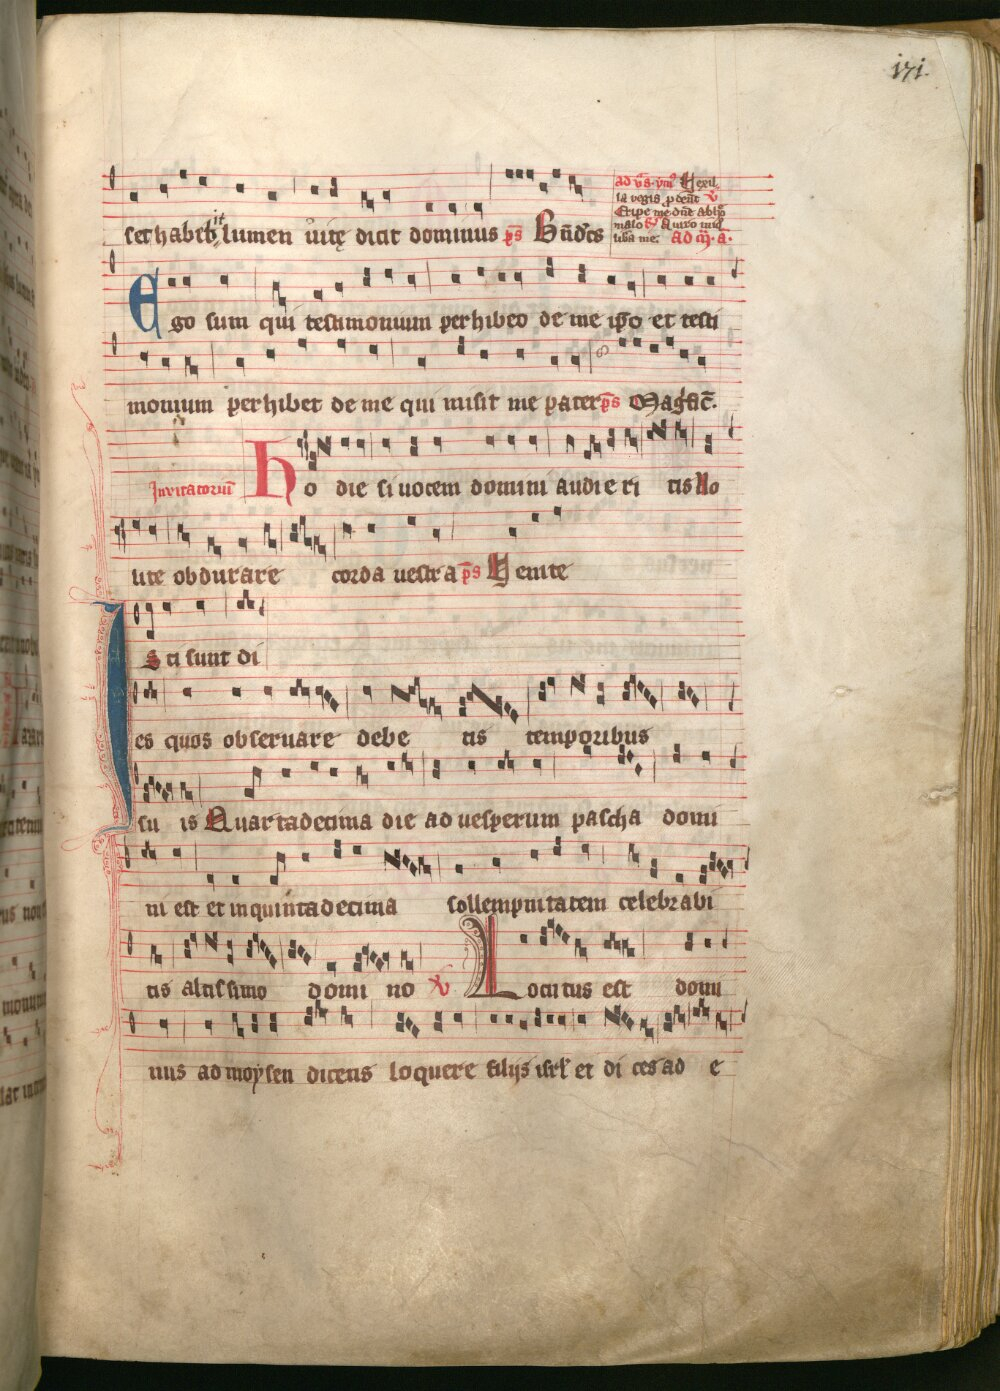 171.
set habeb it lumen uite dicit dominus ps Bñdcs
ad vs. ymꝰ Vexil
la regis ꝓdeūt v
Eripe me dñe ab hoīe
malo A uiro iniq
liba me. Ad m̄. ā.
Ego sum qui testimonium perhibeo de me ip̄o et testi
monium perhibet de me qui misit me pater ps Magnific̄.
Inuitatoriū Ho die si uocem domini audie ri tis No
lite obdurare corda uestra ps Venite
Isti sunt di
es quos obseruare debe tis temporibus
su is Quartadecima die ad uesperum pascha domi
ni est et in quintadecima sollempnitatem celebrabi
tis altissimo domi no V Locutus est domi
nus ad moysen dicens loquere filijs isrl' et di ces ad e